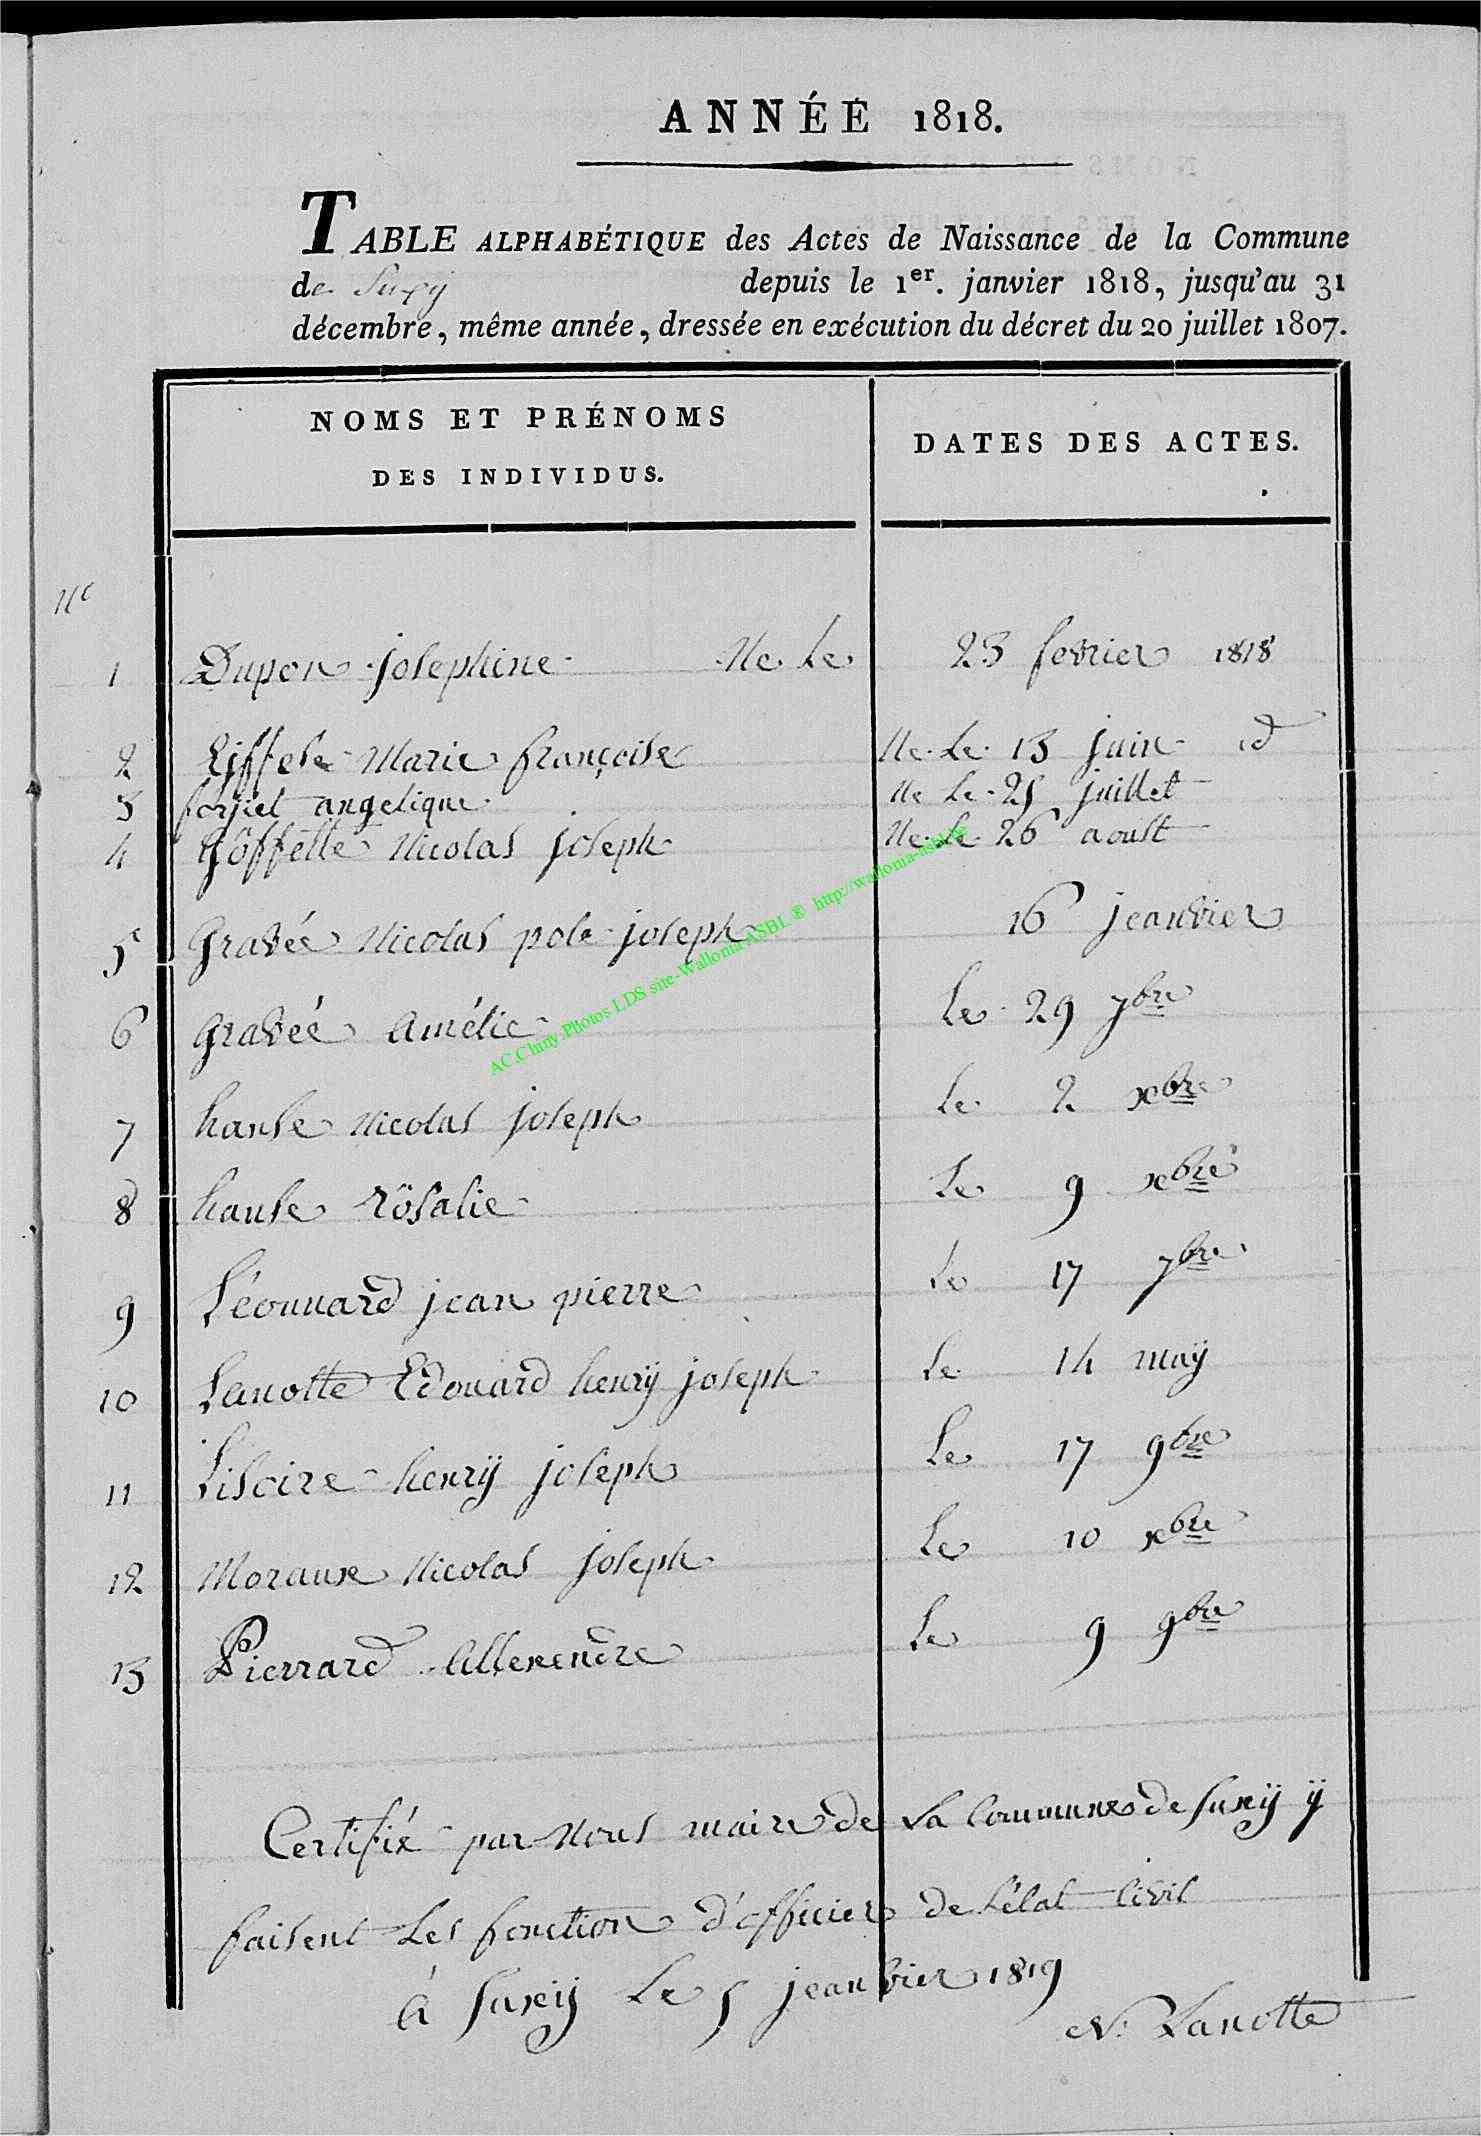 ANNÉE 1818.
TABLE ALPHABÉTIQUE des Actes de Naissance de la Commune
de Suxy depuis le 1er. janvier 1818, jusqu'au 31
décembre, même année, dressée en exécution du décret du 20 juillet 1807.
NOMS ET PRÉNOMS
DES INDIVIDUS.
DATES DES ACTES.
No
1 Dupon josephine Ne Le 23 fevrier 1818
2 Marie françoise Ne Le 13 juin id
3 angelique Ne Le 25 juillet
4 Goffette Nicolas joseph Ne Le 26 aoust
5 Gravée Nicolas pole joseph 16 jeanvier
6 Gravée Amélie Le 29 7bre
7 hause Nicolas joseph Le 2 xbre
8 hause rosalie Le 9 xbre
9 Léonnard jean pierre Le 17 7bre
10 Lanotte Edouard henry joseph Le 14 may
11 Lisoire henry joseph Le 17 9bre
12 Moraux Nicolas joseph Le 10 xbre
13 Pierrard Allexendre Le 9 9bre
Certifié par Nous maire de La Commune de Suxy y
faisent Les fonction d'officier de L'état Civil
à Suxy Le 5 jeanvier 1819
N. Lanotte
AC.Cluny.Photos LDS site-Wallonia ASBL ® http://wallonia-asbl.be